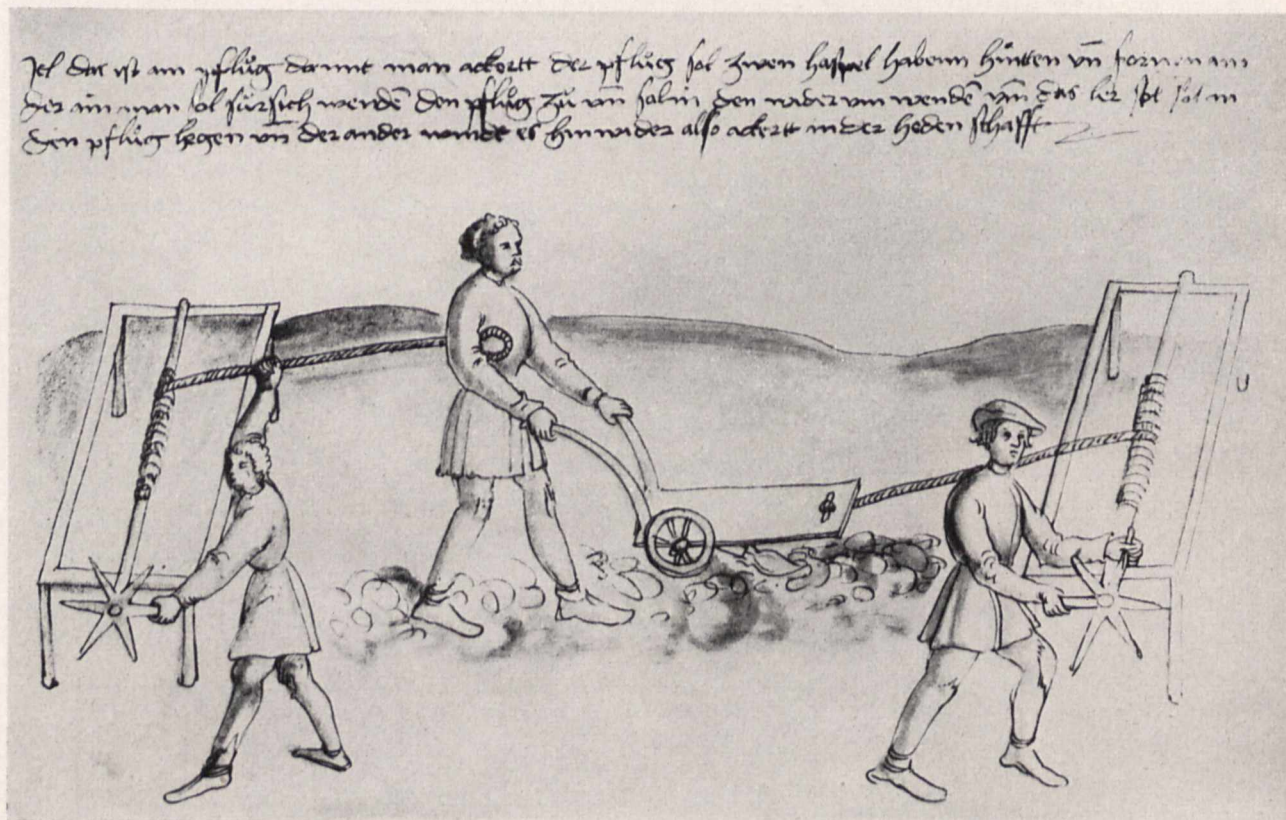 Itel das ist ain pflůg damit man ackertt Der pflůg sol zwen haspel habenn hintten vn̄ fornen an
der ain man sol fürsich wenden̄ den pflůg zů vn̄ wider vm wenden̄ das
den pflůg legen vn̄ der ander windt es hin wider also ackertt in der heden schafft